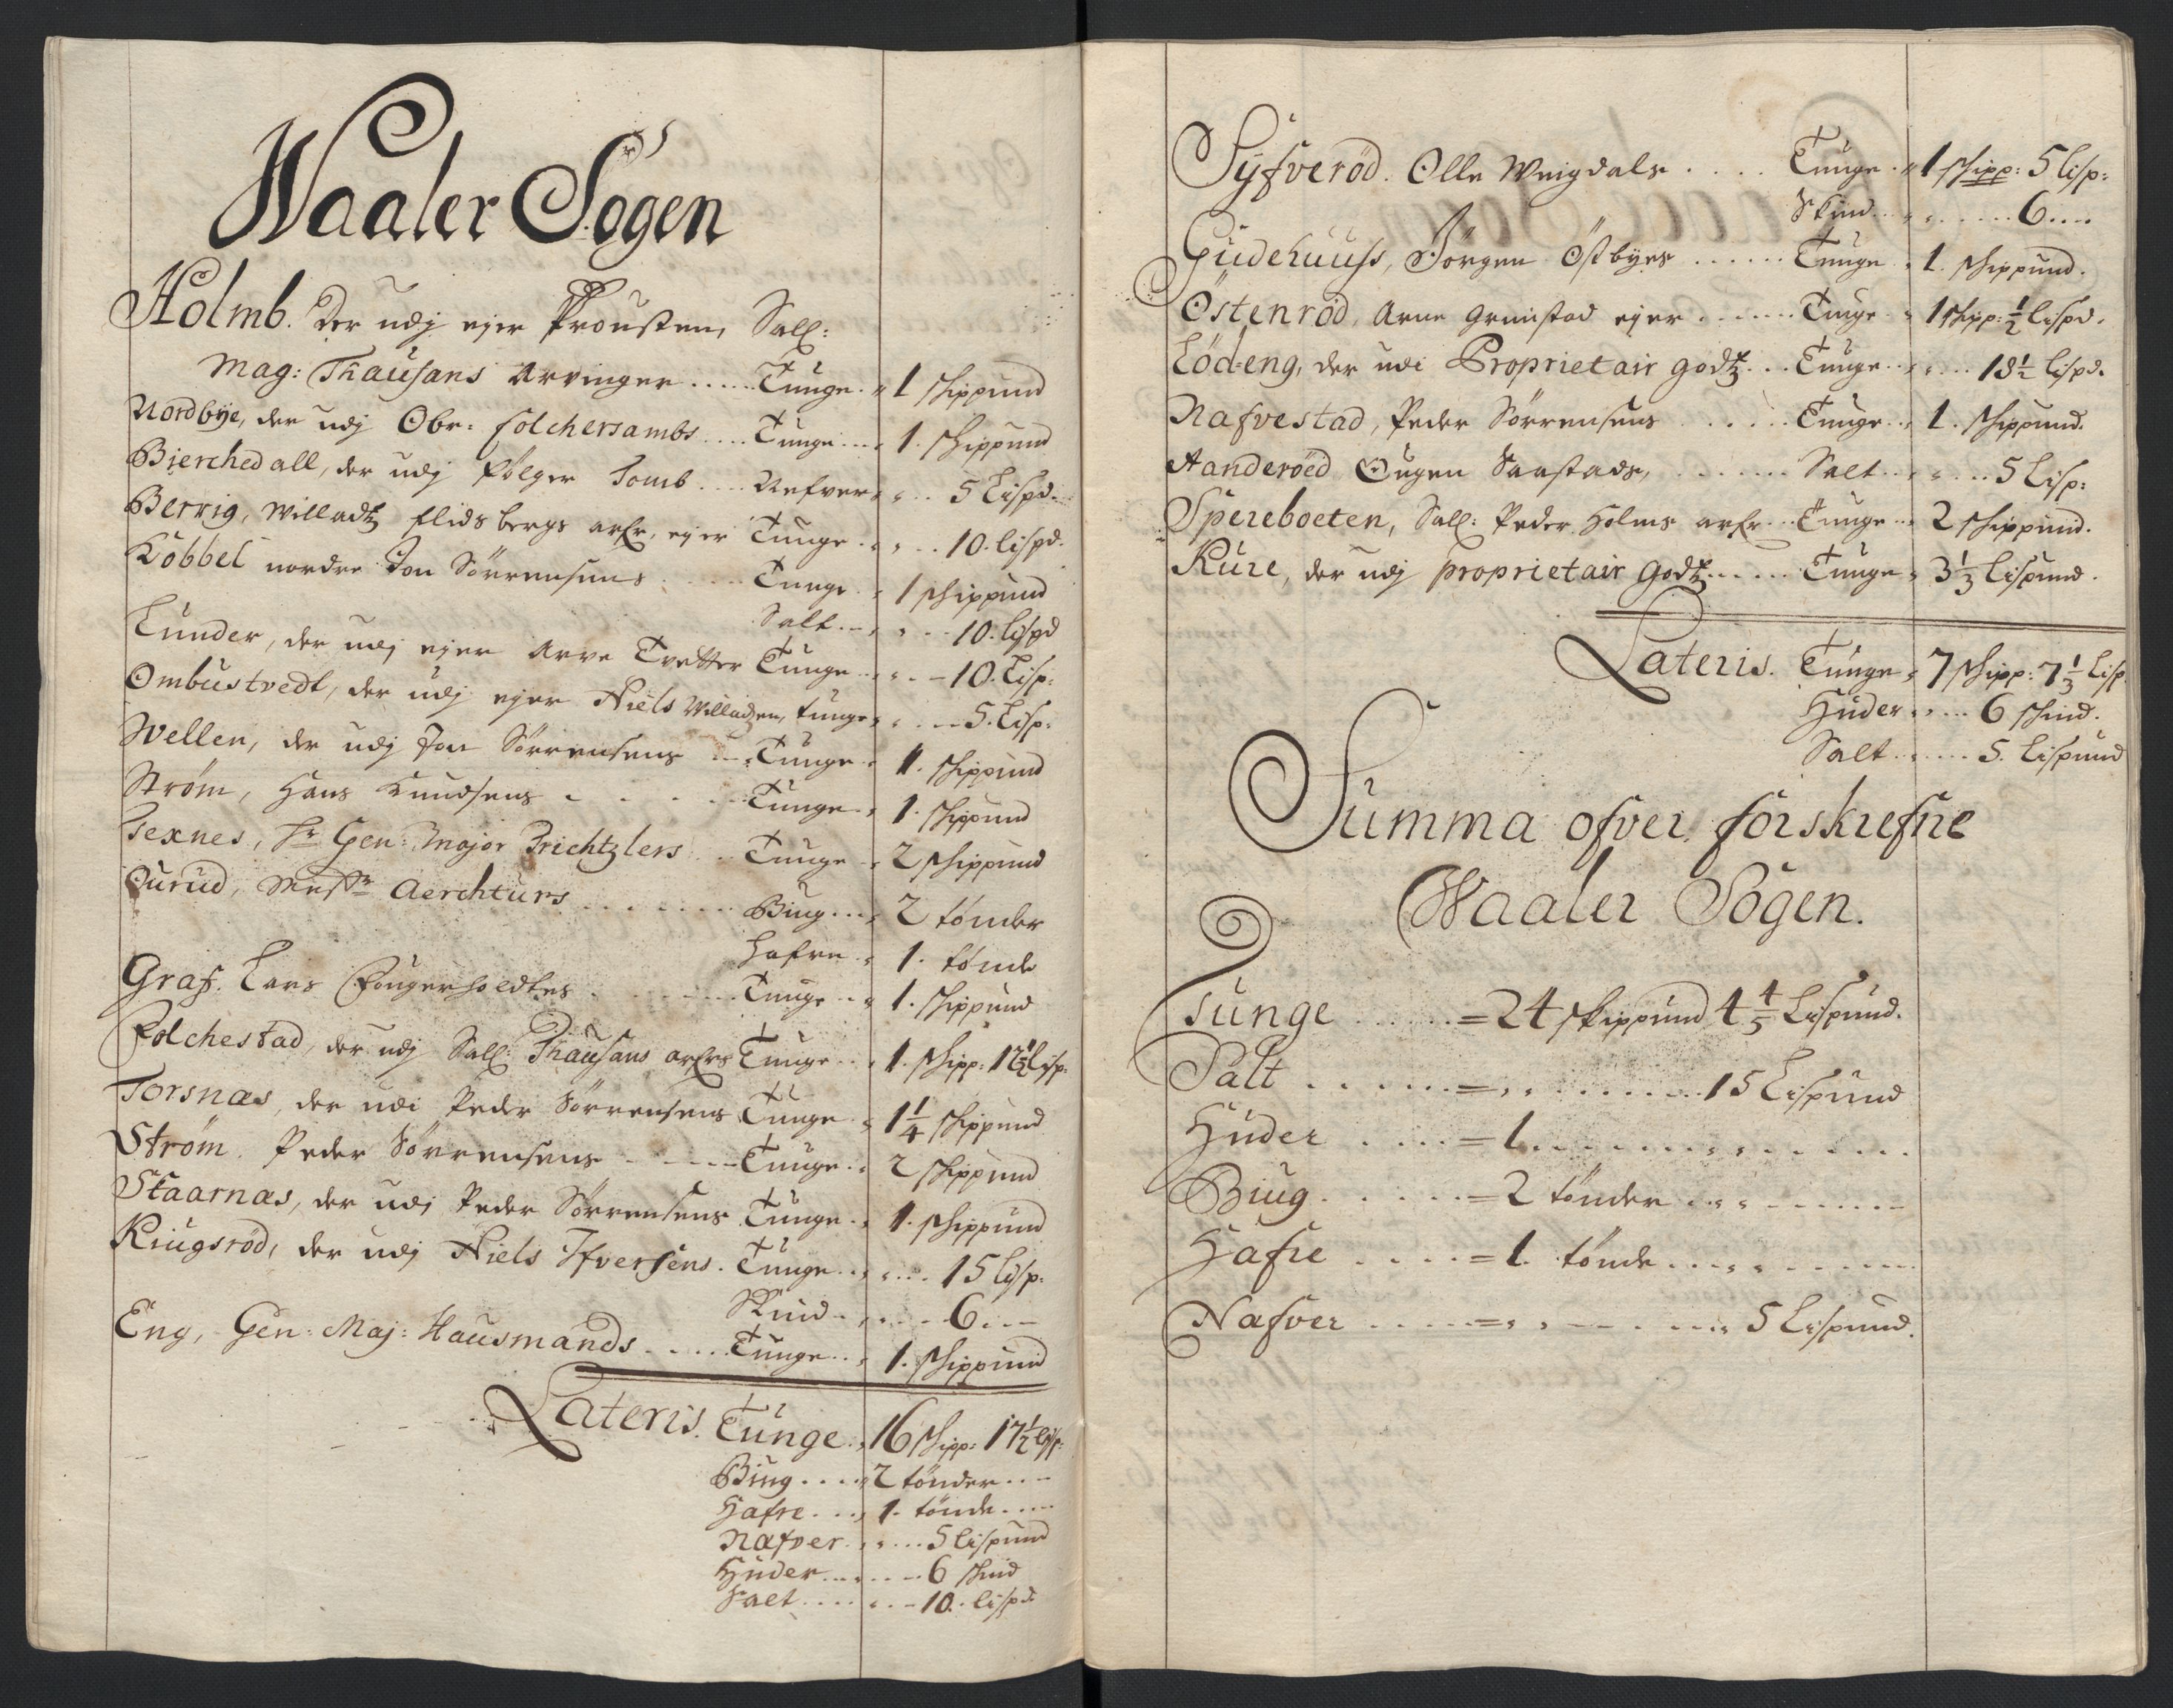 Waaler Sogen
Holmb. Der udj ejer Prousten, Sall:
Mag: Thausans Arvinger ..... Tunge. " 1 Schippund
Nordbÿe, der udj Obr: Colchersambs .... Tunge .... 1. Schippund
Bierchedall, der udj Holger Tomb .... Nefver " " .. 5 Lispd.
Berrig, Willadtz Flidsbergs arfr, ejer Tunge .. " .. 10. lispd.
Kobbel nordre Jon Sörrensens ..... Tunge . " 1 Schippund
Salt. .. " ... 10. lispd
Lunder, der udj ejer Arve Tvetter Tunge .. " .. 10. Lisp:
Ombustvedt, der udj ejer Niels Willadzen, tunge " .... 5. Lisp:
Wellen, der udj Jon Sörrensens .. Tunge . " 1. Schippund
Strøm, Hans Knudsens . . . . . Tunge . " 1. Schippund
Texnes, Hr Gen: Major Brichtzlers .. Tunge .. " 2 Schippund
Ourud, Messrs Aerchturs ........ Biug ... " 2 tønder
Hafre . " 1. tønde
Graf. Lars Fougerholdtes ........ Tunge .. " 1. Schippund
Folchestad, der udj Sall: Thausans arfrs Tunge .. " 1. Schipp: 12½ Lisp:
Torsnæs, der udi Peder Sörrensens Tunge . " 1¼ Schippund
Strøm. Peder Sörrensens ..... Tunge .. " 2 Schippund
Staarnæs, der udj Peder Sörrensens Tunge .. " 1. Schippund
Kiugsrød, der udj Niels Ifversens. Tunge .. " .... 15 Lisp:
Skind .. " .... 6 ....
Eng, Gen: Maj: Hausmands ..... Tunge ... " 1. Schippund
Lateris. Tunge . " 16 Schipp: 17½ Lisp:
Biug .... " 2 tønder ....
Hafre .... " 1. tønde ....
Næfver .. " .... 5 Lispund
Huder .... " .... 6 Skind
Salt .... " ... 10. lispd
Syfverød. Olle Weigdals .... Tunge . " 1 Schipp: 5 Lisp:
Skind .. " ....... 6 ....
Gudehuuss, Jörgen Östbyes ...... Tunge . " 1. Schippund.
Östenröd, Arne Grimstad ejer ....... Tunge . " 1 Schipp: ½ Lispd.
Lödeng, der udi Proprietair Godtz ... Tunge .. " .... 18½ Lispd.
Nafvestad, Peder Sörrensens ...... Tunge .. " 1. Schippund.
Aanderöed Ougen Saastads, ...... Salt .. " .... 5 Lisp:
Spereboeten, Sall: Peder Holms arfr .. Tunge .. " 2 Schippund.
Kure, der udj proprietair Godtz ...... Tunge " 3⅓ Lispund.
Lateris. Tunge " 7 Schipp: 7⅓ Lisp
Huder " .... 6 Skind.
Salt " ..... 5. Lispund
Summa ofver forskrefne
Waaler Sogen.
Tunge ...... = 24 Skippund 4⅘ Lispund.
Salt ........ = " ........ 15 Lispund
Huder ..... = 1 ..............
Biug ...... = 2 tønder ..........
Hafre ..... = 1. tønde ..........
Næfver ...... = " " ........ 5 Lispund.